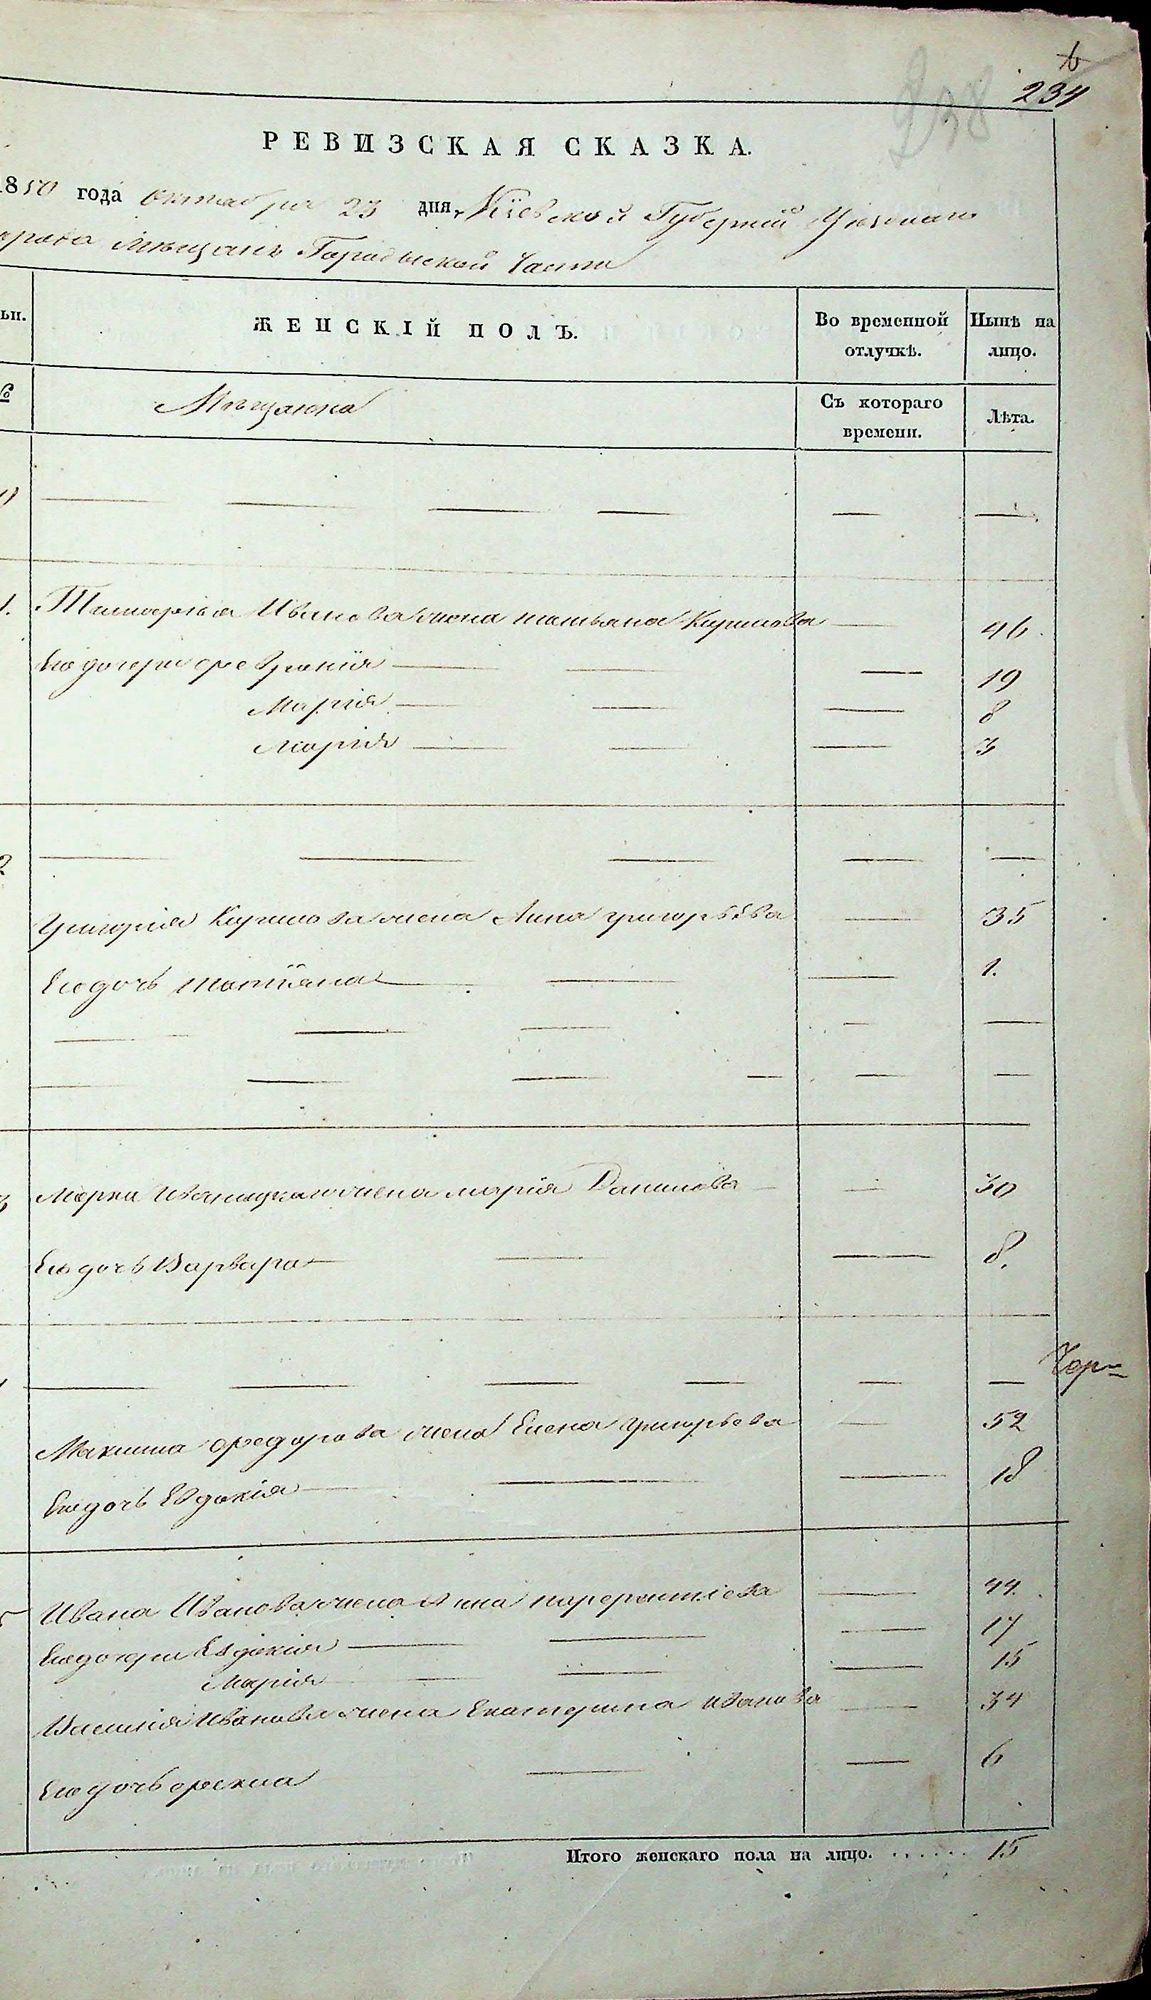 238
234
РЕВИЗСКАЯ СКАЗКА.
1850 года октября 23 дня, Кіевской Губерніи Уезднаго
Мещанъ Городыской Части
ЖЕНСКІЙ ПОЛЪ.
Во временной отлучкѣ.
Нынѣ на лицо.
№
Мещанка
Съ котораго времени.
Лѣта.
Ивановажена татьяна Кирилова 46.
Егодочери 19
Марія 8
Марія 3
2
Григорія Кирилова жена Анна григорьева 35
Егодочь татіяна 1.
3 Марка жена марія Данилова 30
Егодочь Варвара 8.
Чер=
Максима федорова жена Елена григорьева 52
Егодочь Евдокія 18
5 Ивана Ивановажена Анна 44.
Егодочери Евдокія 17
Марія 15
Василія Иванова жена Екатерина иванова 34
Егодочь 6
Итого женскаго пола на лицо. . . . . . . 15